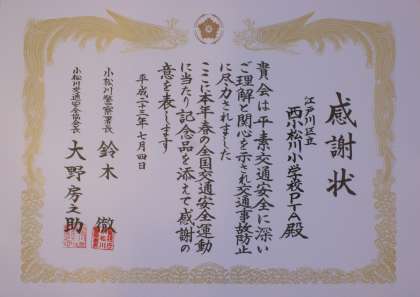 感謝状
江戸川区立
西小松川小学校PTA殿
貴会は平素交通安全に深い
ご理解と関心を示され交通事故防止
に尽力されました
ここに本年春の全国交通安全運動
に当たり記念品を添えて感謝の
意を表します
平成二十三年七月四日
小松川警察署長 鈴木 徹
小松川交通安全協会長 大野房之助